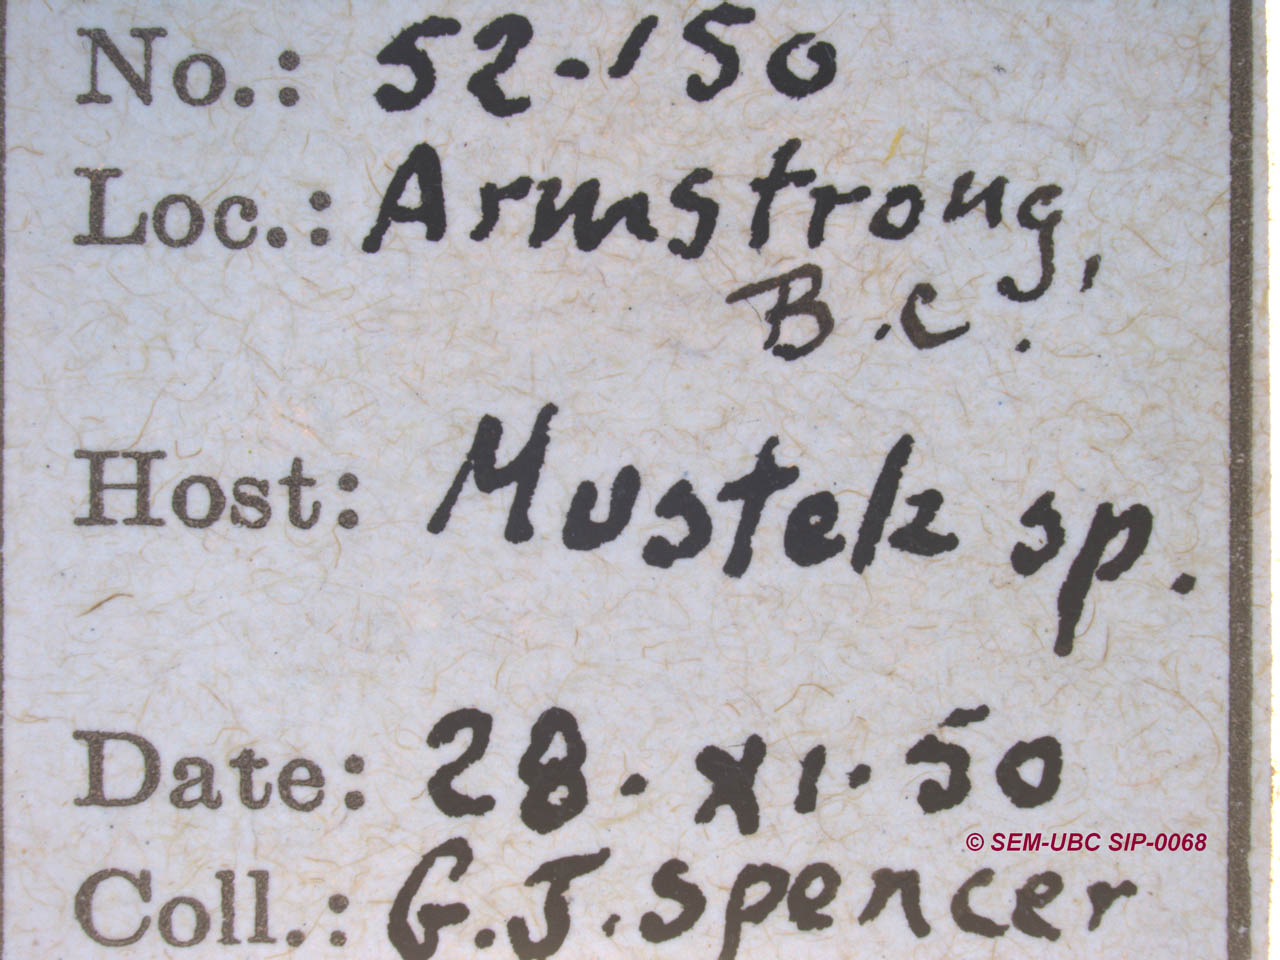 No.: 52-150
Loc.: Armstrong,
B.C.
Host: Mustela sp.
Date: 28.XI.50
© SEM-UBC SIP-0068
Coll.: G.J.Spencer